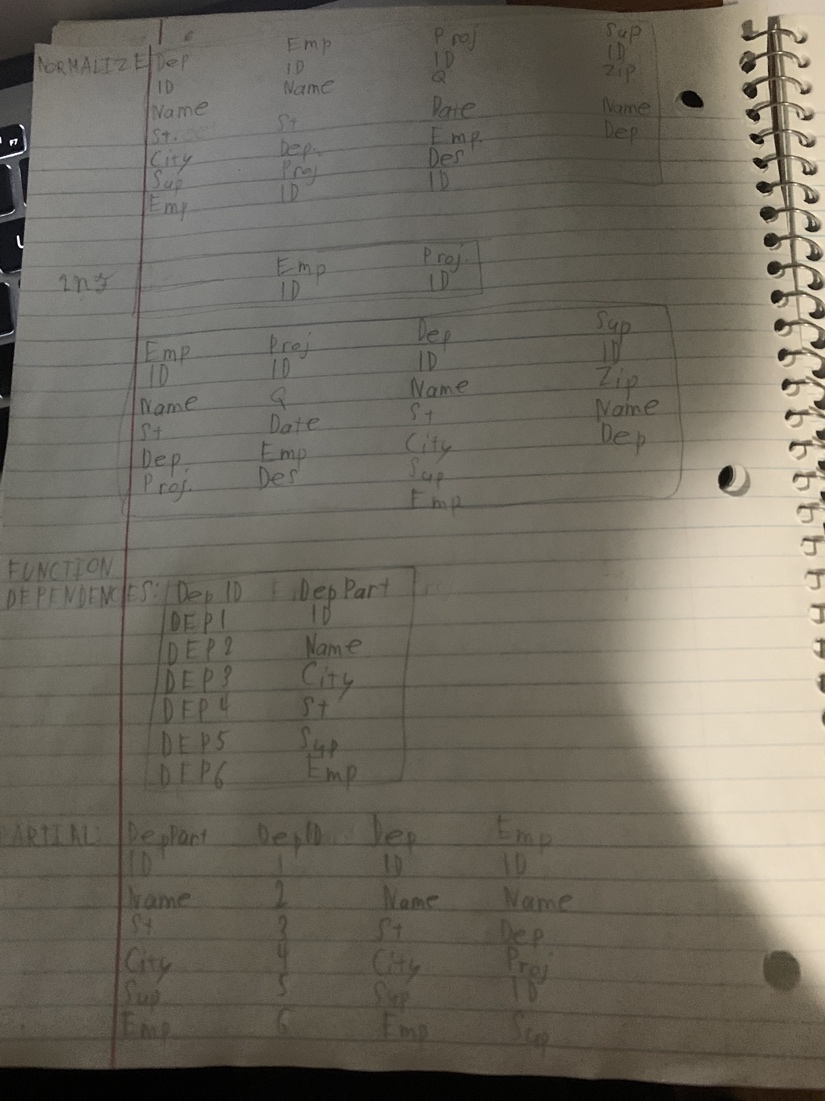 NORMALIZE Dep Emp Proj Sup
ID ID ID ID
Name Name Q Zip
St. St Date Name
City Dep. Emp. Dep
Sup Proj Des
Emp ID ID
Emp Proj.
ID ID
Emp Proj Dep Sup
ID ID ID ID
Name Q Name Zip
St Date St Name
Dep Emp City Dep
Proj. Des Sup
Emp
FUNCTION
DEPENDENCIES: Dep ID DepPart
DEP1 ID
DEP2 Name
DEP3 City
DEP4 St
DEP5 Sup
DEP6 Emp
PARTIAL: DepPart DepID Dep Emp
ID 1 ID ID
Name 2 Name Name
St 3 St Dep
City 4 City Proj
Sup 5 Sup ID
Emp 6 Emp Sup